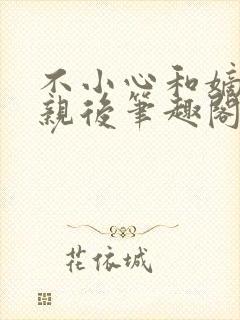 不小心和嫡
親後筆趣閣
花依城